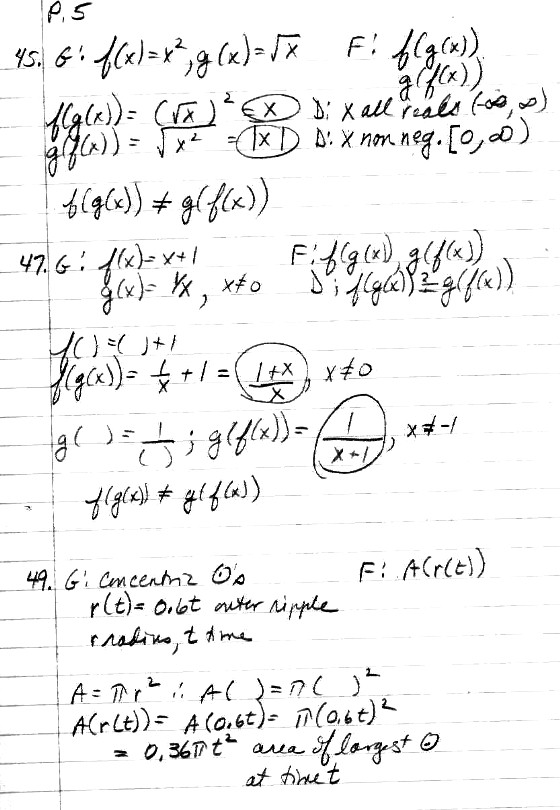 P. 5
45. G: f(x)=x², g(x)=√x F: f(g(x))
g(f(x))
f(g(x)) = (√x)² = x D: x all reals (-∞, ∞)
g(f(x)) = √x² = |x| D: x non neg. [0, ∞)
f(g(x)) ≠ g(f(x))
47. G: f(x)= x+1 F: f(g(x)), g(f(x))
g(x)= 1/x, x≠0 D: f(g(x)) ≟ g(f(x))
f( ) = ( ) + 1
f(g(x)) = 1/x + 1 = (1+x)/x, x≠0
g( ) = 1/( ) ; g(f(x)) = 1/(x+1), x≠-1
f(g(x)) ≠ g(f(x))
49. G: concentric ⊙'s F: A(r(t))
r(t)= 0.6t outer ripple
r radius, t time
A = πr² ∴ A( ) = π( )²
A(r(t)) = A(0.6t) = π(0.6t)²
= 0.36πt² area of largest ⊙
at time t